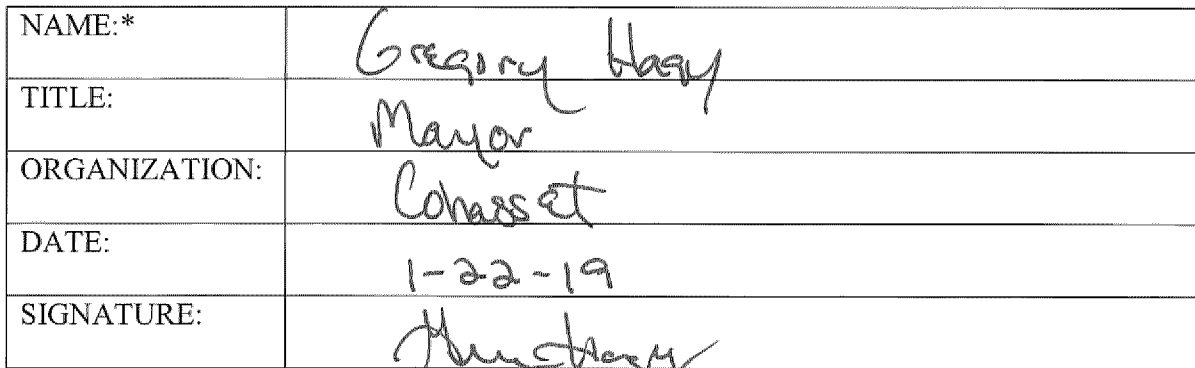 NAME:* Gregory Hagy
TITLE: Mayor
ORGANIZATION: Cohasset
DATE: 1-22-19
SIGNATURE: